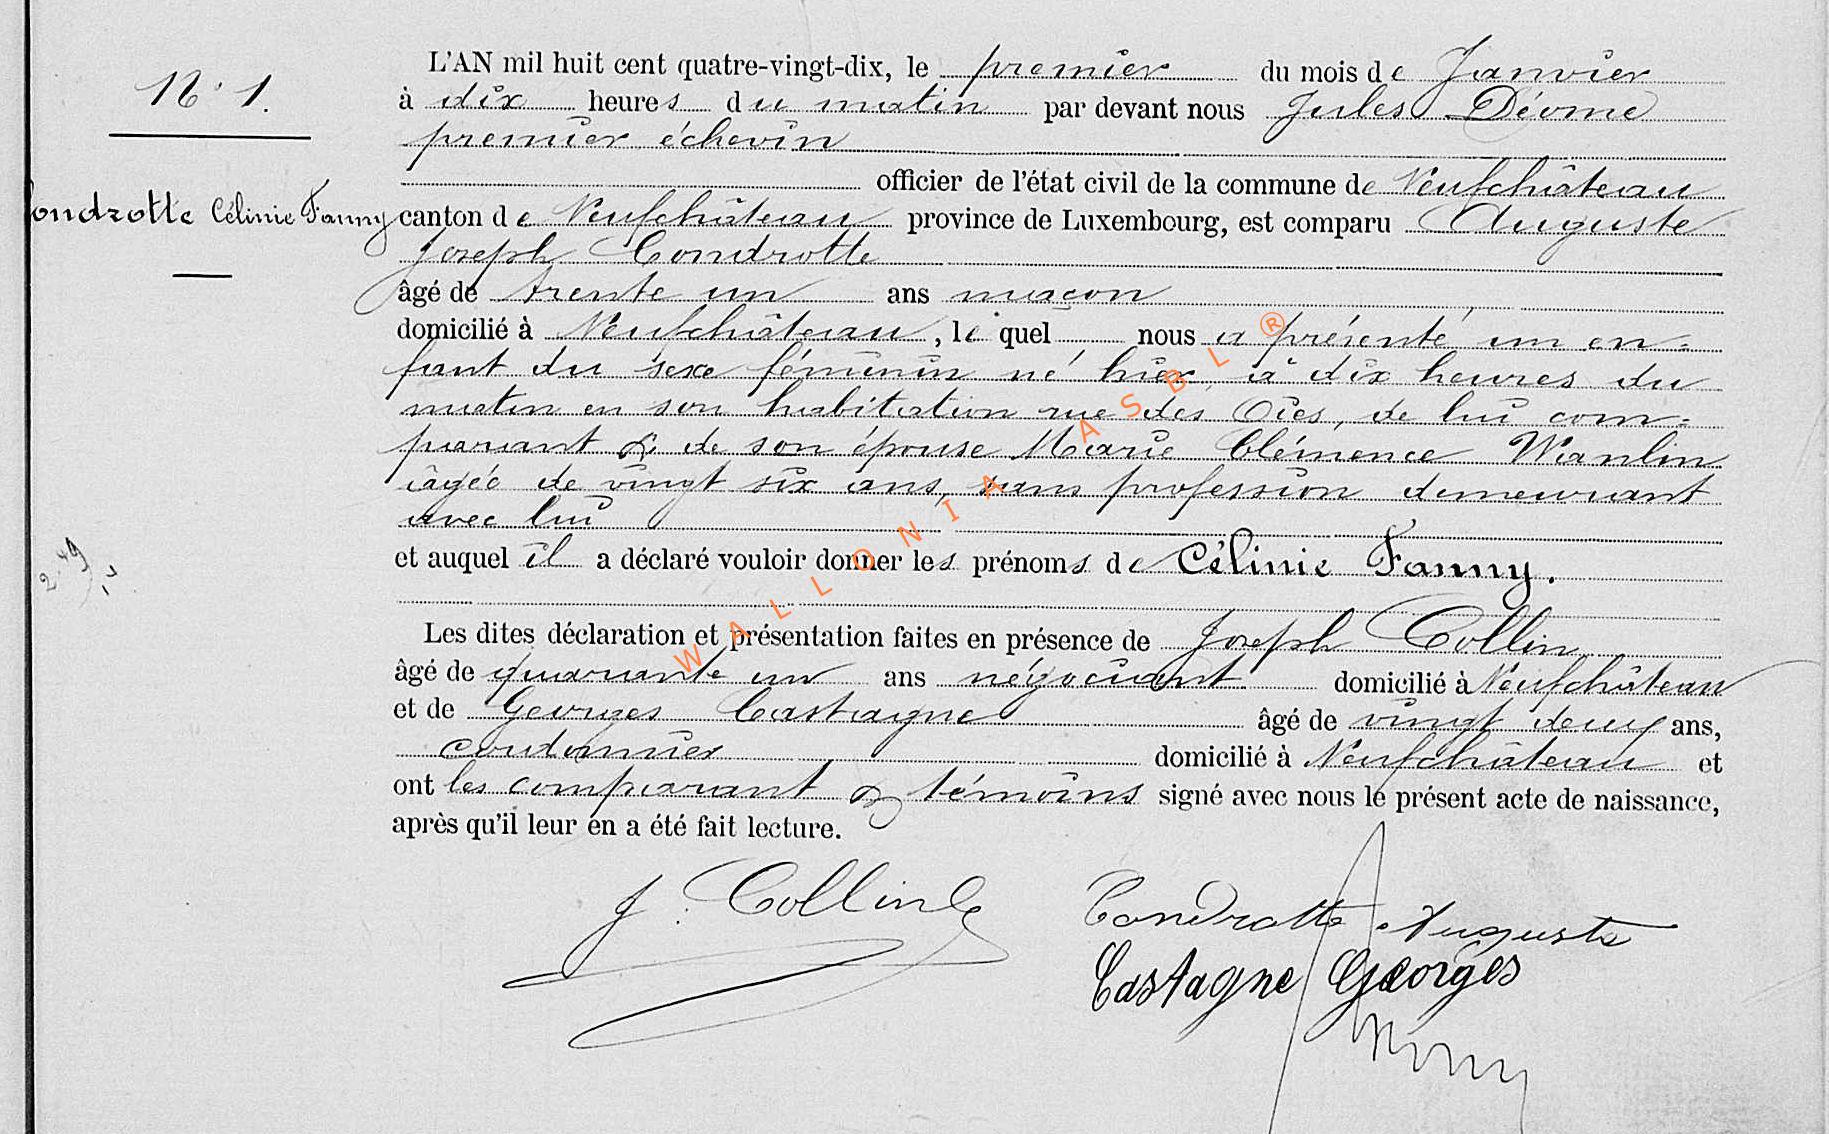 N° 1.
Condrotte Célinie Fanny
L'AN mil huit cent quatre-vingt-dix, le premier du mois de Janvier
à dix heures du matin par devant nous Jules Déome
premier échevin
officier de l'état civil de la commune de Neufchâteau
canton de Neufchâteau province de Luxembourg, est comparu Auguste
Joseph Condrotte
âgé de trente un ans maçon
domicilié à Neufchâteau, le quel nous a présenté un en-
fant du sexe féminin né hier, à dix heures du
matin en son habitation rue des Oies, de lui com-
parant & de son épouse Marie Clémence Wanlin
âgée de vingt six ans, sans profession demeurant
avec lui
et auquel il a déclaré vouloir donner les prénoms de Célinie Fanny.
Les dites déclaration et présentation faites en présence de Joseph Collin
âgé de quarante un ans négociant domicilié à Neufchâteau
et de Georges Castagne âgé de vingt deux ans,
cordonnier domicilié à Neufchâteau et
ont les comparant & témoins signé avec nous le présent acte de naissance,
après qu'il leur en a été fait lecture.
J. Collin
Condrotte Auguste
Castagne Georges
WALLONIA ASBL ®